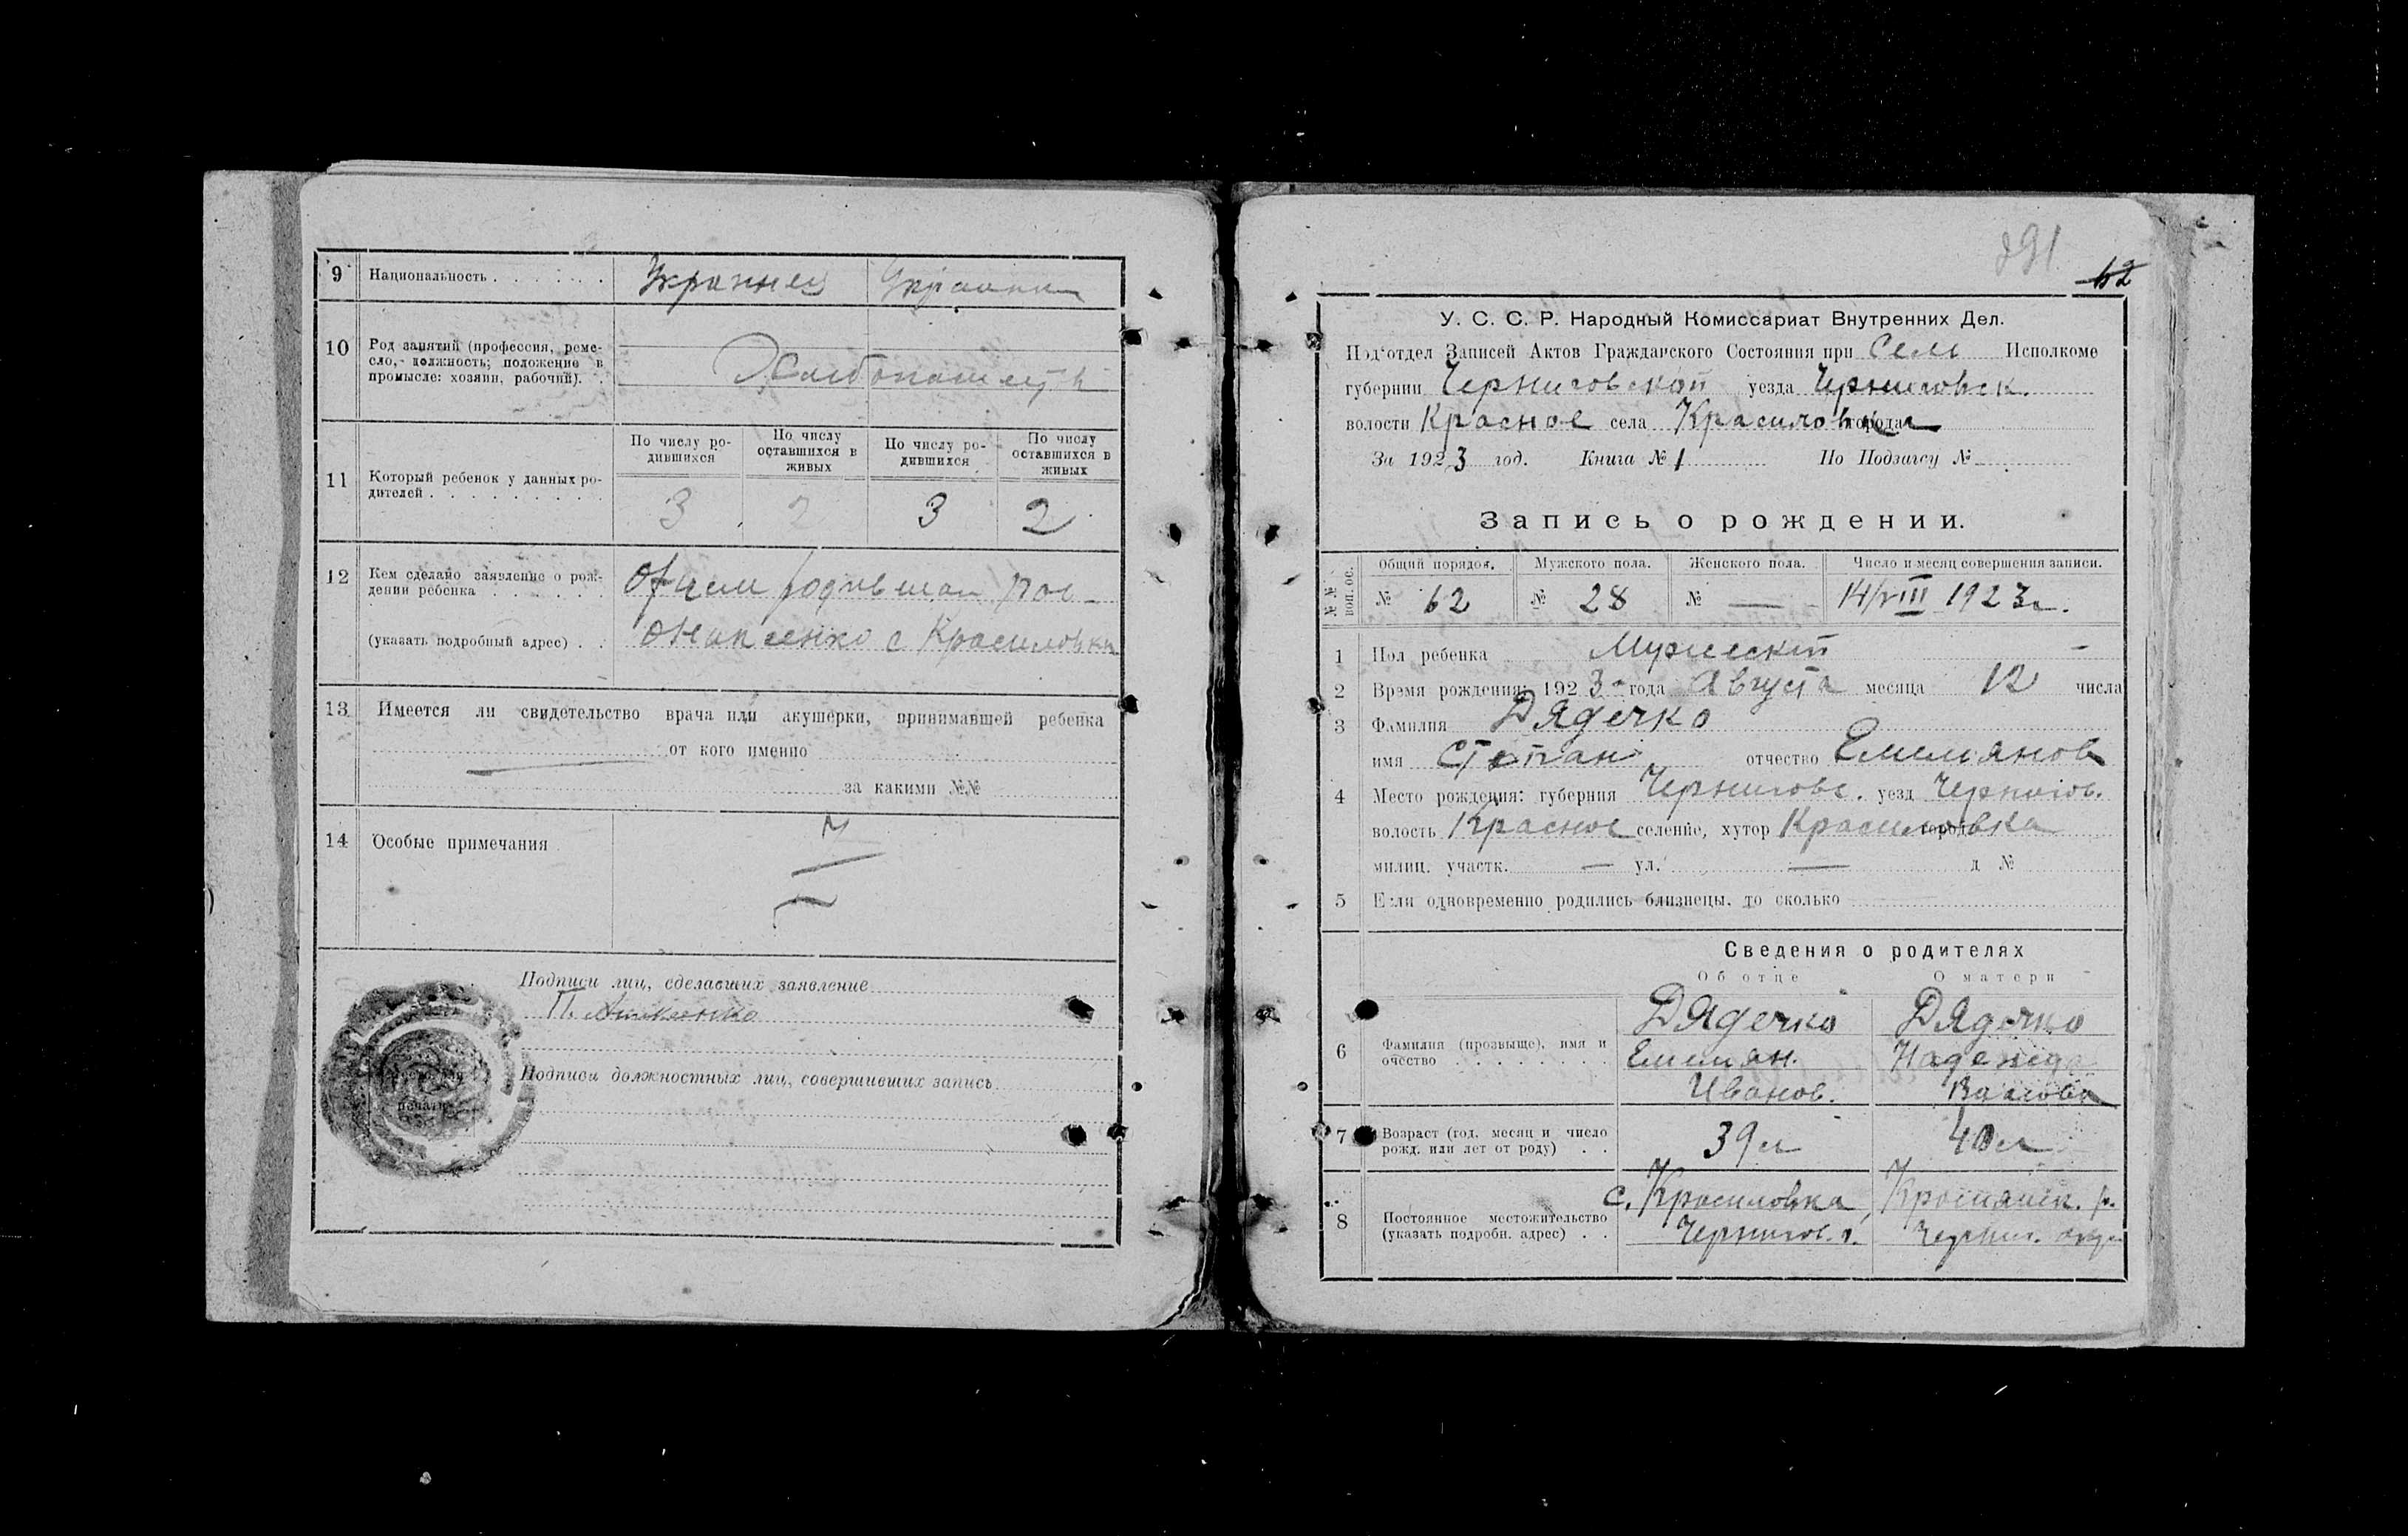 9 Национальность . . . . . . Украинец Украинка
10 Род занятий (профессия, реме-
сло, должность; положение в
промысле: хозяин, рабочий). . Хлебопашец
По числу ро-
дившихся
По числу
оставшихся в
живых
По числу ро-
дившихся
По числу
оставшихся в
живых
11 Который ребенок у данных ро-
дителей . . . . . . . . . 3 2 3 2
12 Кем сделано заявление о рож-
дении ребенка . . . . . .
(указать подробный адрес) . . с Красиловки
13 Имеется ли свидетельство врача или акушерки, принимавшей ребенка
от кого именно
за какими №№
14 Особые примечания
Подписи лиц, сделавших заявление
П.
Подписи должностных лиц, совершивших запись
печати
291
62
У. С. С. Р. Народный Комиссариат Внутренних Дел.
Под‘отдел Записей Актов Гражданского Состояния при Сель Исполкоме
губернии Черниговской уезда Черниговск.
волости Красное села Красиловка города
За 1923 год. Книга № 1 По Подзагсу №
Запись о рождении.
№ № воп. ос. Общий порядок. Мужского пола. Женского пола. Число и месяц совершения записи.
№ 62 № 28 № — 14/VIII 1923 г.
1 Пол ребенка Мужеский
2 Время рождения: 1923 года Августа месяца 12 числа
3 Фамилия Дядечко
имя Степан отчество Емельянов
4 Место рождения: губерния Черниговс. уезд Чернигов.
волость Красное селение, хутор Красиловка город
милиц. участк. — ул. — д №
5 Если одновременно родились близнецы, то сколько
Сведения о родителях
Об отце О матери
6 Фамилия (прозвище), имя и
очество . . . . . . .
Дядечко
Емельян.
Иванов.
Дядечко
Надежда
7 Возраст (год, месяц и число
рожд. или лет от роду) . . 39 л 40 л
8 Постоянное местожительство
(указать подробн. адрес) . .
с. Красиловка,
Чернигов. г.
Черниг.